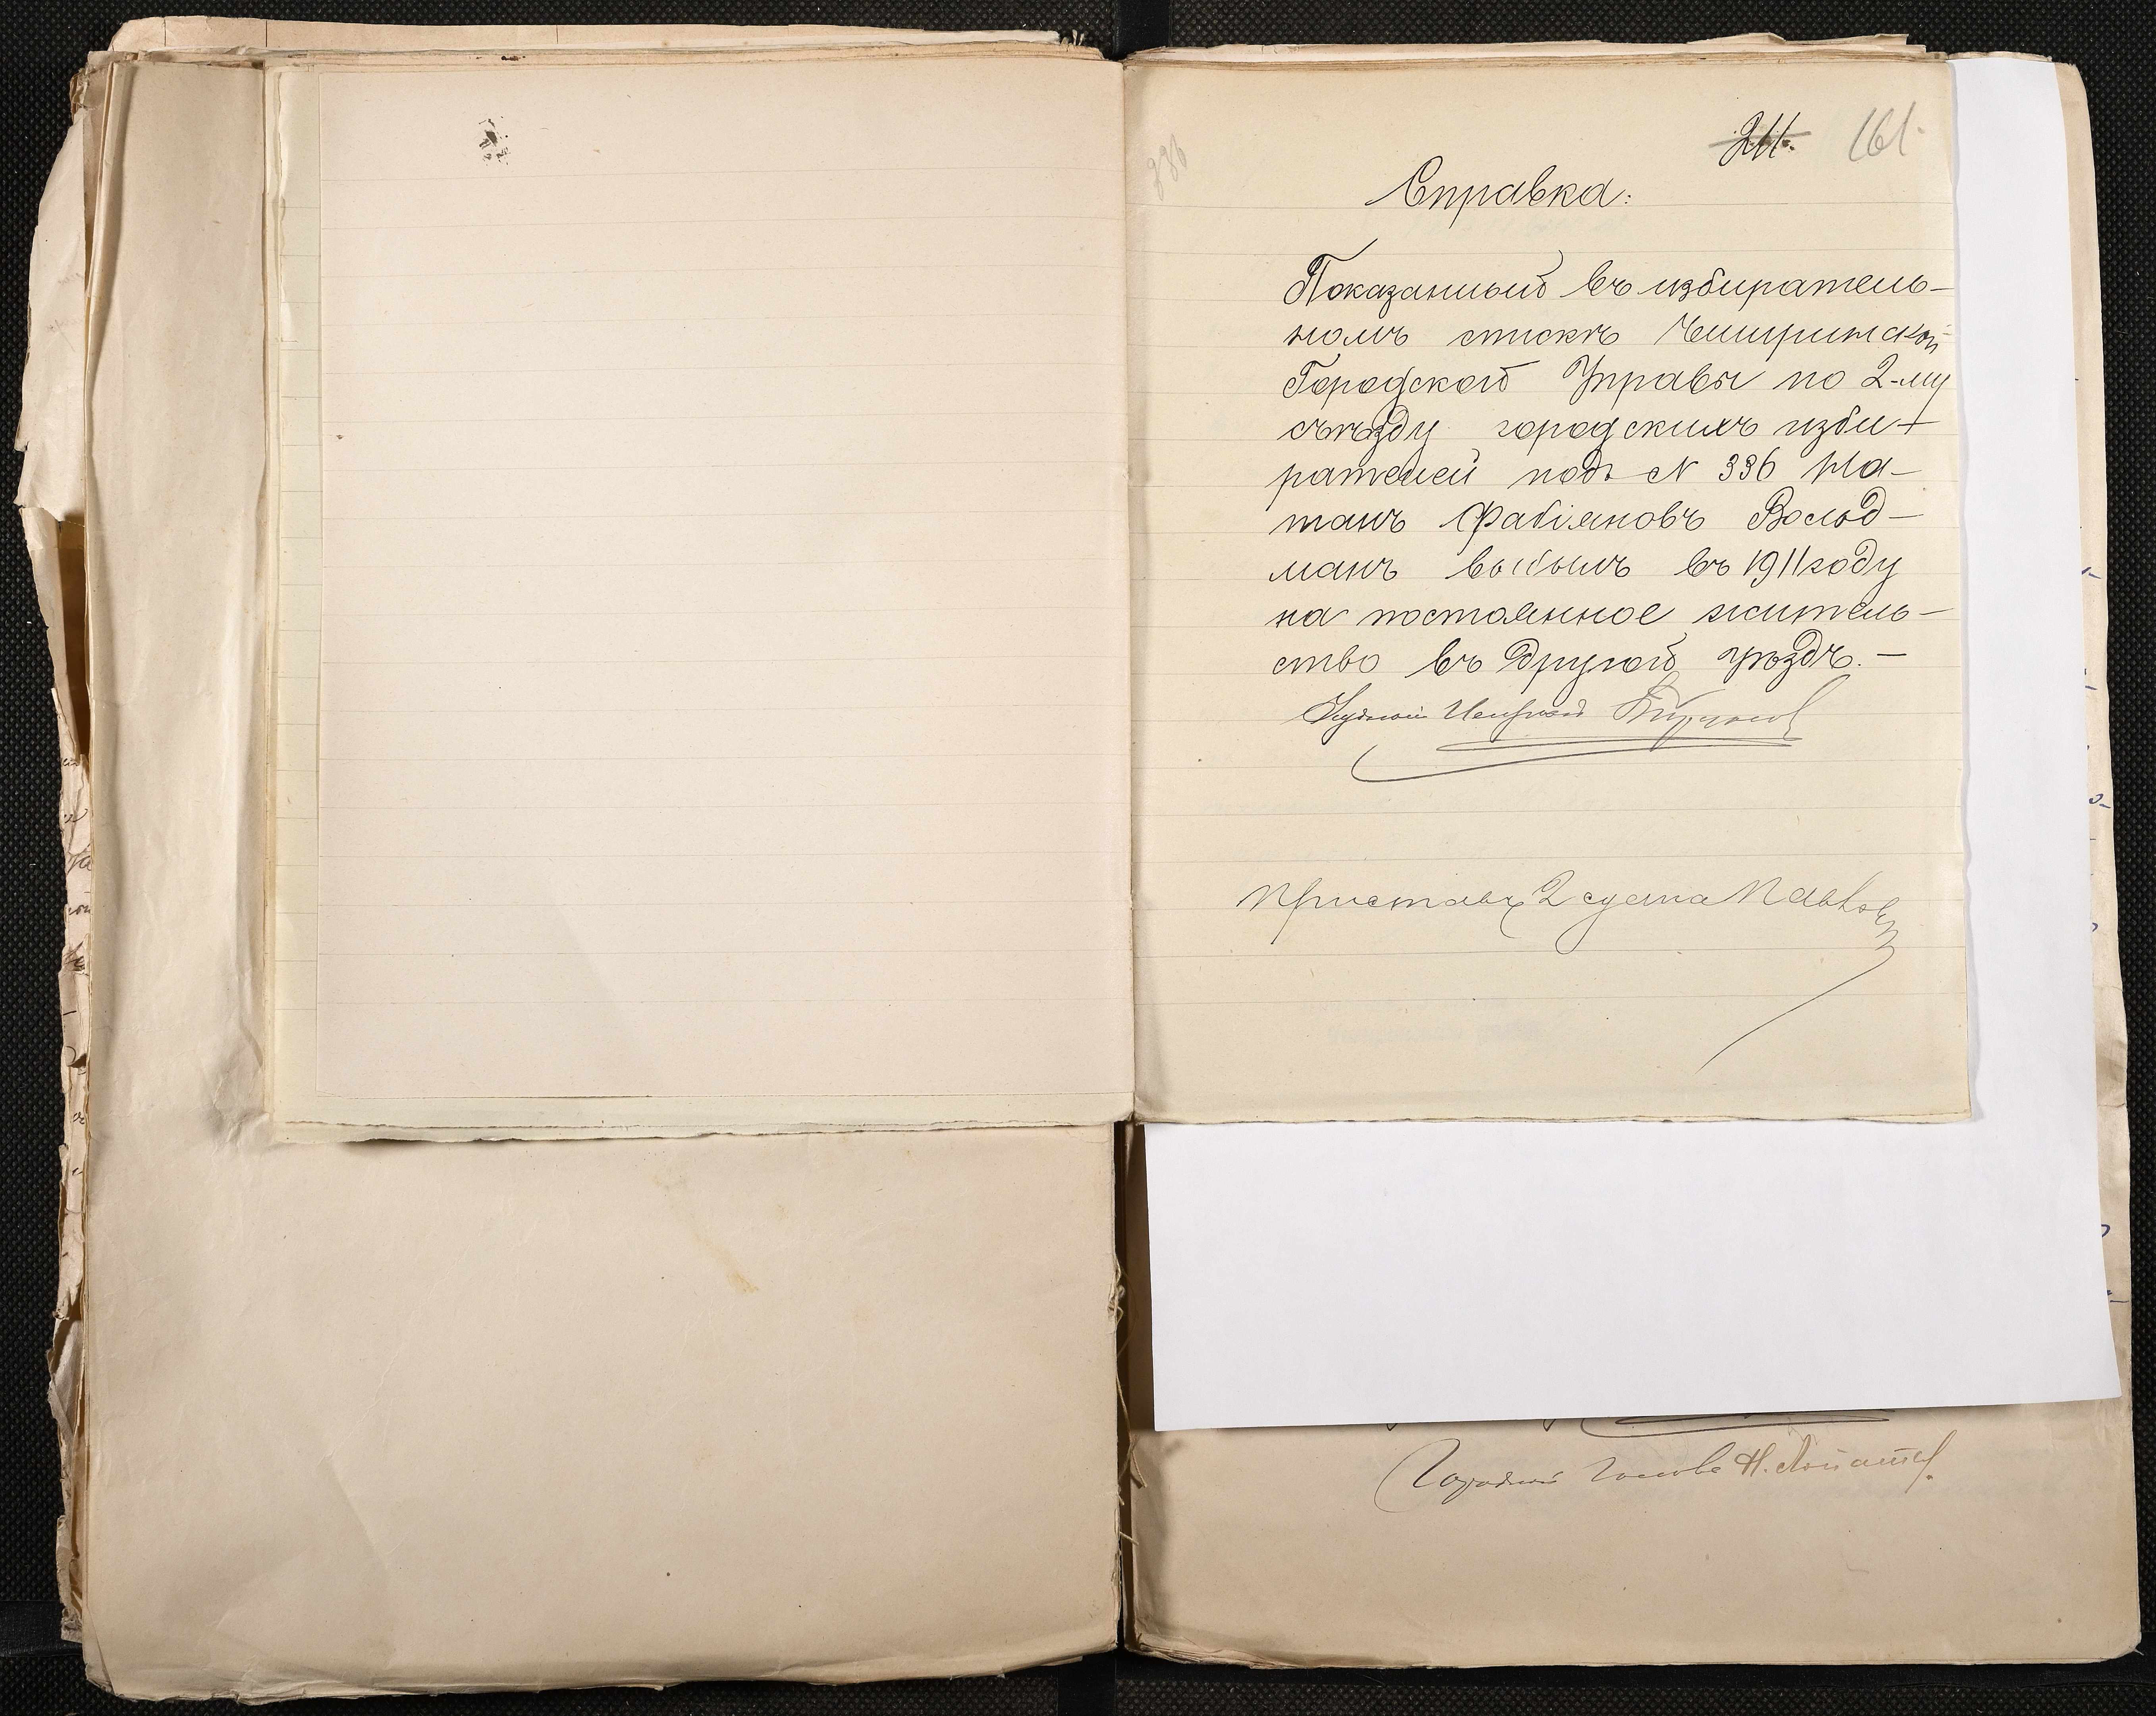 211. 161.
336
Справка:
Показанный въ избиратель-
номъ спискѣ Чигиринской
Городской Управы по 2-му
съѣзду городскихъ изби-
рателей подъ № 336 На-
танъ Фабіяновъ Вольд-
манъ выбылъ въ 1911 году
на постоянное житель-
ство въ другой уѣздъ.-
Приставъ 2 стана Павлов
Городской Голова Н.